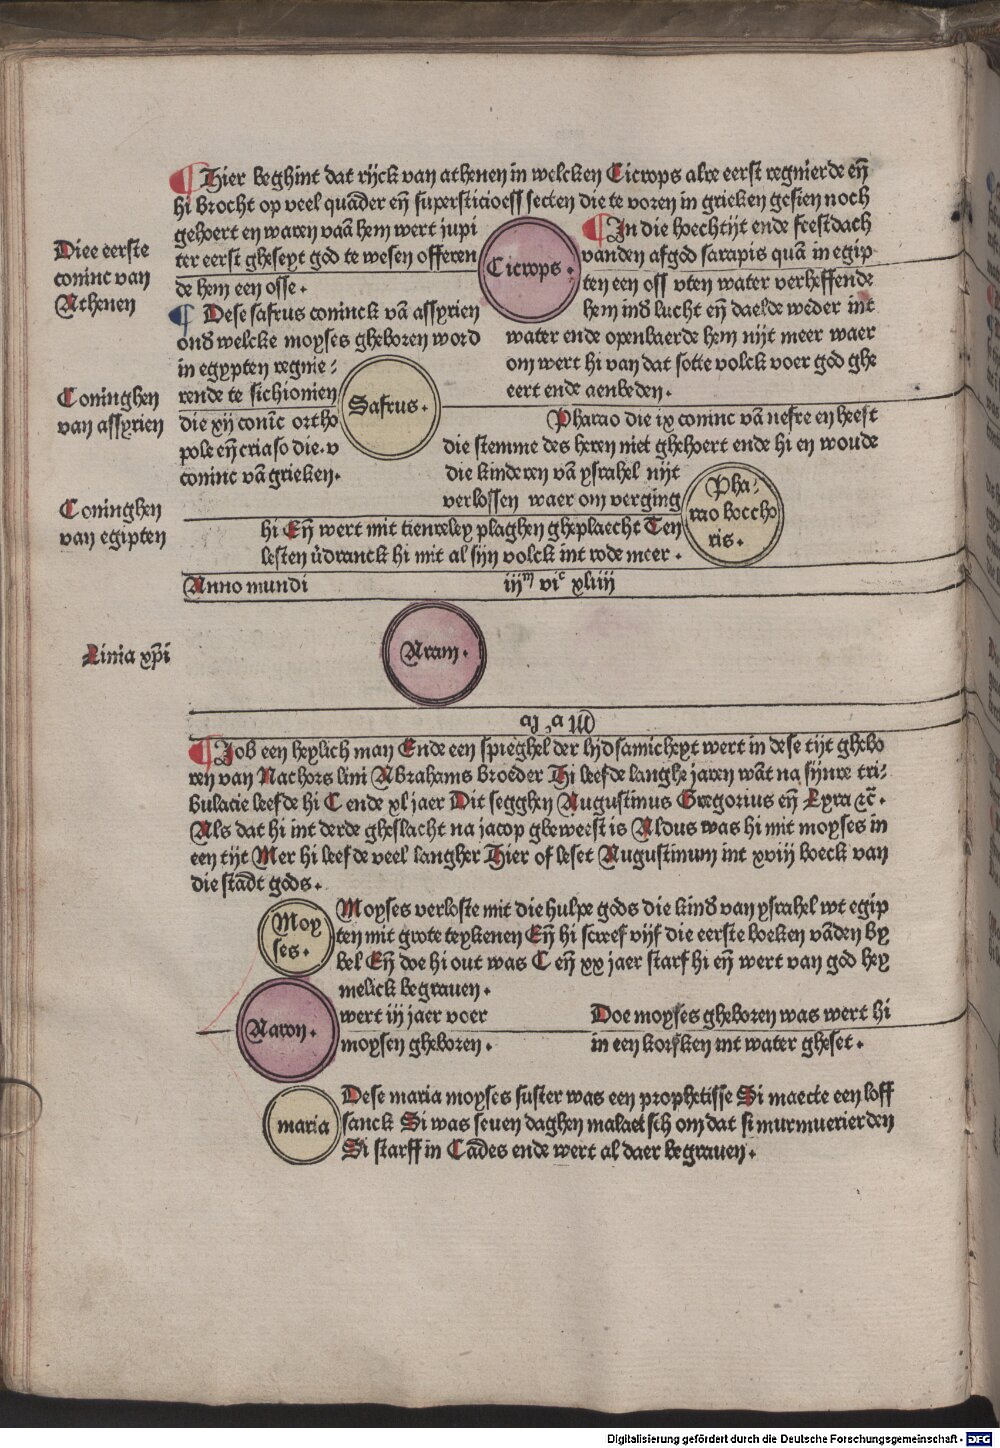 ¶ Hier beghint dat rijck van athenen in welcken Cicrops alre eerst regnierde eñ
hi brocht op veel quāder eñ supersticioess secten die te voren in grieken gesien noch
gehoert en waren vaā hem wert jupi
ter eerst gheseyt god te wesen offeren
de hem een osse.
Diee eerste
coninc van
Athenen
Cicrops.
¶ In die hoechtijt ende feestdach
vanden afgod sarapis quā in egip
ten een oss vten water verheffende
hem inđ lucht eñ daelde weder int
water ende openbaerde hem nijt meer waer
om wert hi van dat sotte volck voer god ghe
eert ende aenbeden.
¶ Dese safrus coninck vā assyrien
onđ welcke moyses gheboren word
in egypten regnie-
rende te sichionien
die xij conīc ortho
pole eñ criaso die. v
coninc vā grieken.
Coninghen
van assyrien
Safrus.
Pharao die ix coninc vā nefre en heest
die stemme des heren niet ghehoert ende hi en woude
die kinderen vā ysrahel nijt
verlossen waer om verging
hi Eñ wert mit tienreley plaghen gheplaecht Ten
lesten v̄dranck hi mit al sijn volck int rode meer.
Coninghen
van egipten
Pha-
rao boccho
ris.
Anno mundi iijᵐ viᶜ xliiij
Linia xp̄i
Aram.
¶ Job een heylich man Ende een spieghel der lijdsamicheyt wert in dese tijt ghebo
ren van Nachors lini Abrahams broeder Hi leefde langhe jaren wāt na sijnre tri-
bulacie leefde hi C ende xl jaer Dit segghen Augustinus Gregorius eñ Lyra ⁊c̄.
Als dat hi int derde gheslacht na jacop gheweest is Aldus was hi mit moyses in
een tijt Mer hi leefde veel langher Hier of leset Augustinum int xviij boeck van
die stadt gods.
Moy
ses.
Moyses verloste mit die hulpe gods die kinđ van ysrahel wt egip
ten mit grote teykenen Eñ hi screef vijf die eerste boeken vāden by
bel Eñ doe hi out was C eñ xx jaer starf hi eñ wert van god hey
melick begrauen.
Aaron.
wert iij jaer voer
moysen gheboren.
Doe moyses gheboren was wert hi
in een korfken int water gheset.
maria
Dese maria moyses suster was een prophetisse Si maecte een loff
sanck Si was seuen daghen malaetsch om dat si murmuerierden
Si starff in Cades ende wert al daer begrauen.
Digitalisierung gefördert durch die Deutsche Forschungsgemeinschaft - DFG